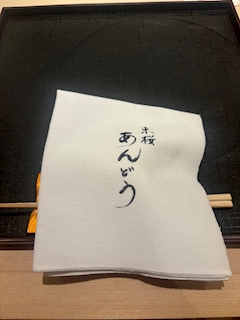 末桜
あんどう